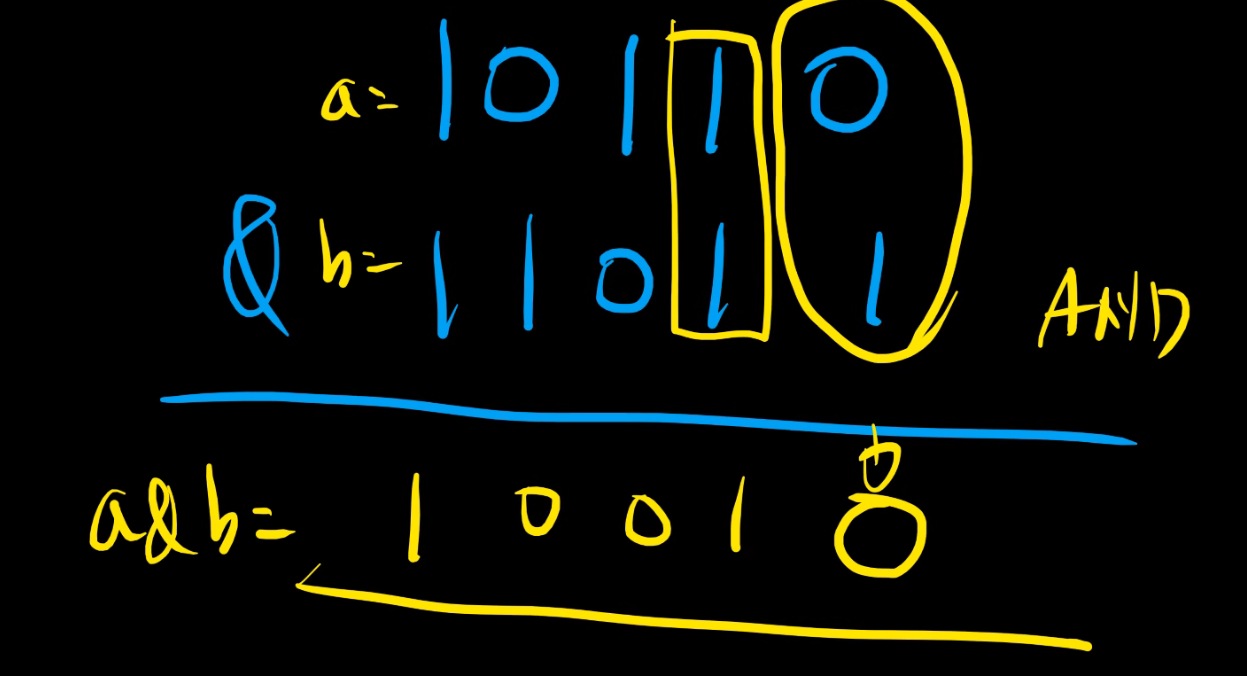 a= 1 0 1 1 0
& b= 1 1 0 1 1
AND
a&b= 1 0 0 1 0